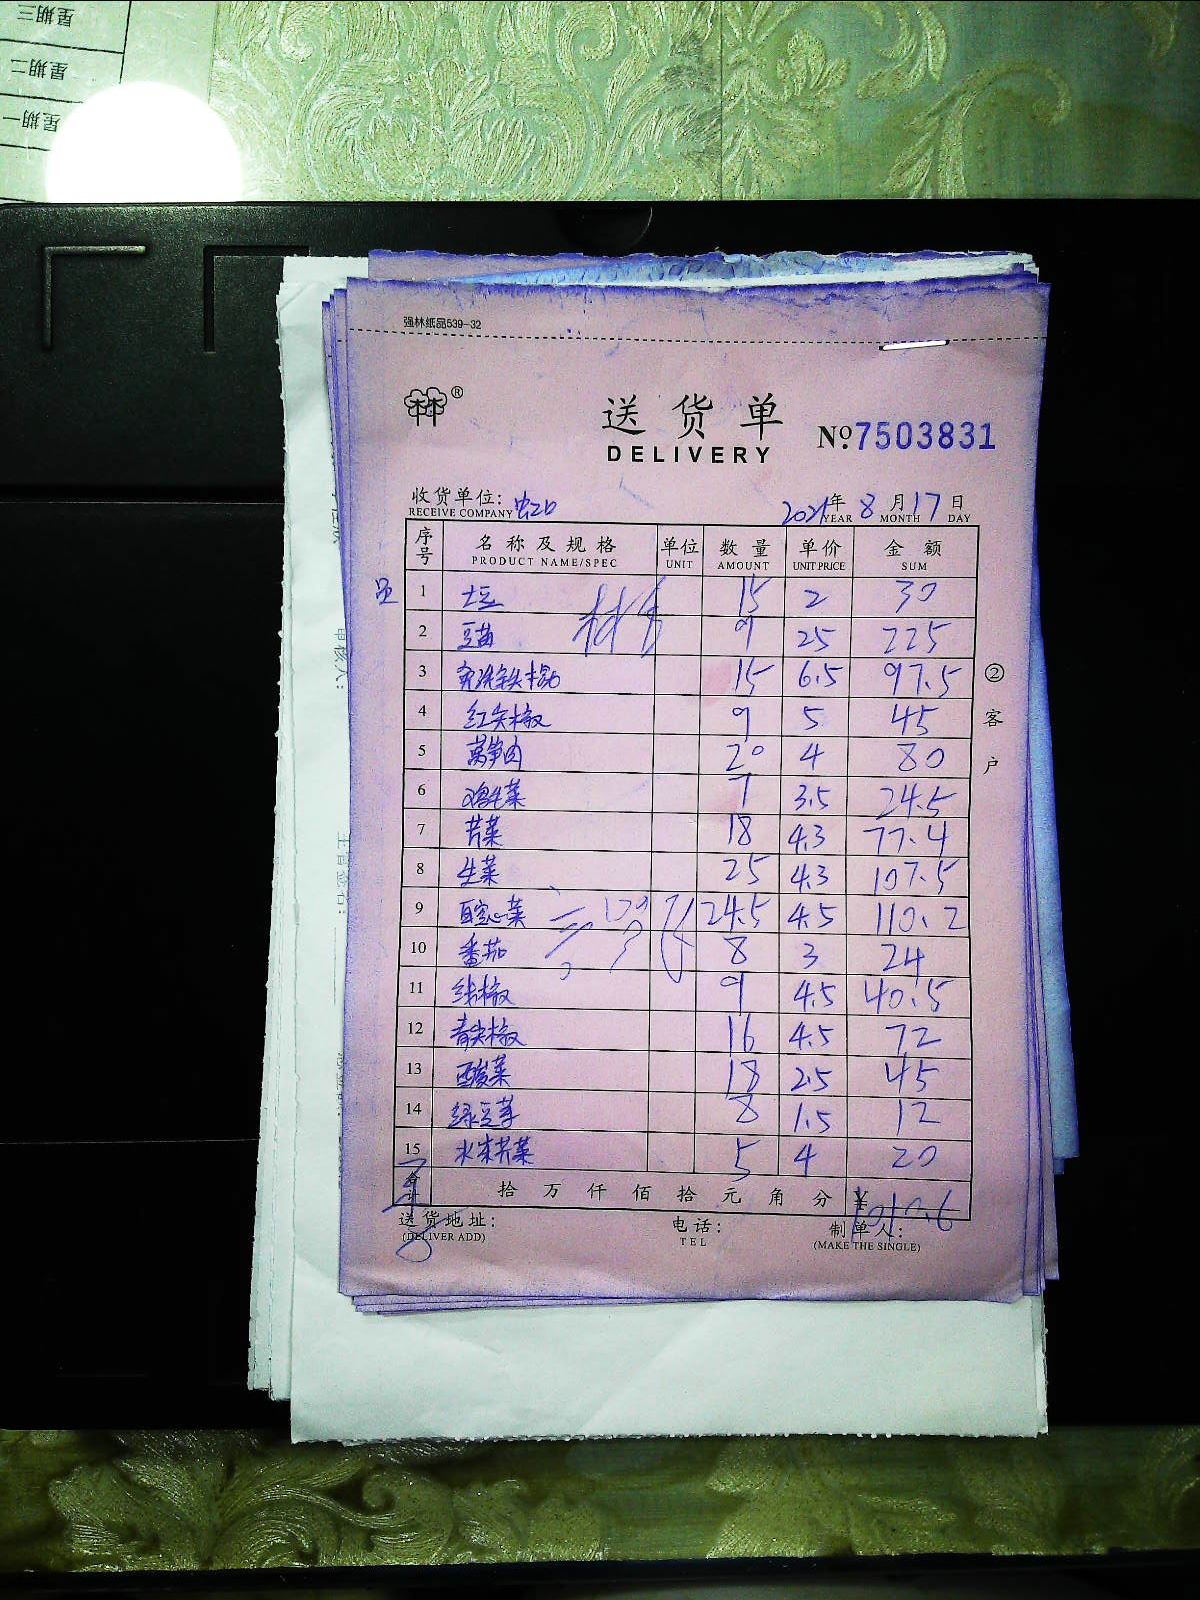 星期三
星期二
星期一
强林纸品539-32
林®
送货单
DELIVERY
№7503831
收货单位: 2021年8月17日
RECEIVE COMPANY YEAR MONTH DAY
序号 名称及规格 单位 数量 单价 金额
PRODUCT NAME/SPEC UNIT AMOUNT UNIT PRICE SUM
1 土豆 15 2 30
2 豆苗 9 25 225
3 15 6.5 97.5
4 红尖椒 9 5 45
5 莴笋肉 20 4 80
6 鸡毛菜 7 3.5 24.5
7 芹菜 18 4.3 77.4
8 生菜 25 4.3 107.5
9 空心菜 24.5 4.5 110.2
10 番茄 8 3 24
11 线椒 9 4.5 40.5
12 青尖椒 16 4.5 72
13 酸菜 18 2.5 45
14 绿豆芽 8 1.5 12
15 水芹菜 5 4 20
合计 拾万仟佰拾元角分 ¥1010.6
送货地址: 电话: 制单人:
(DELIVER ADD) TEL (MAKE THE SINGLE)
②客户
审核人: